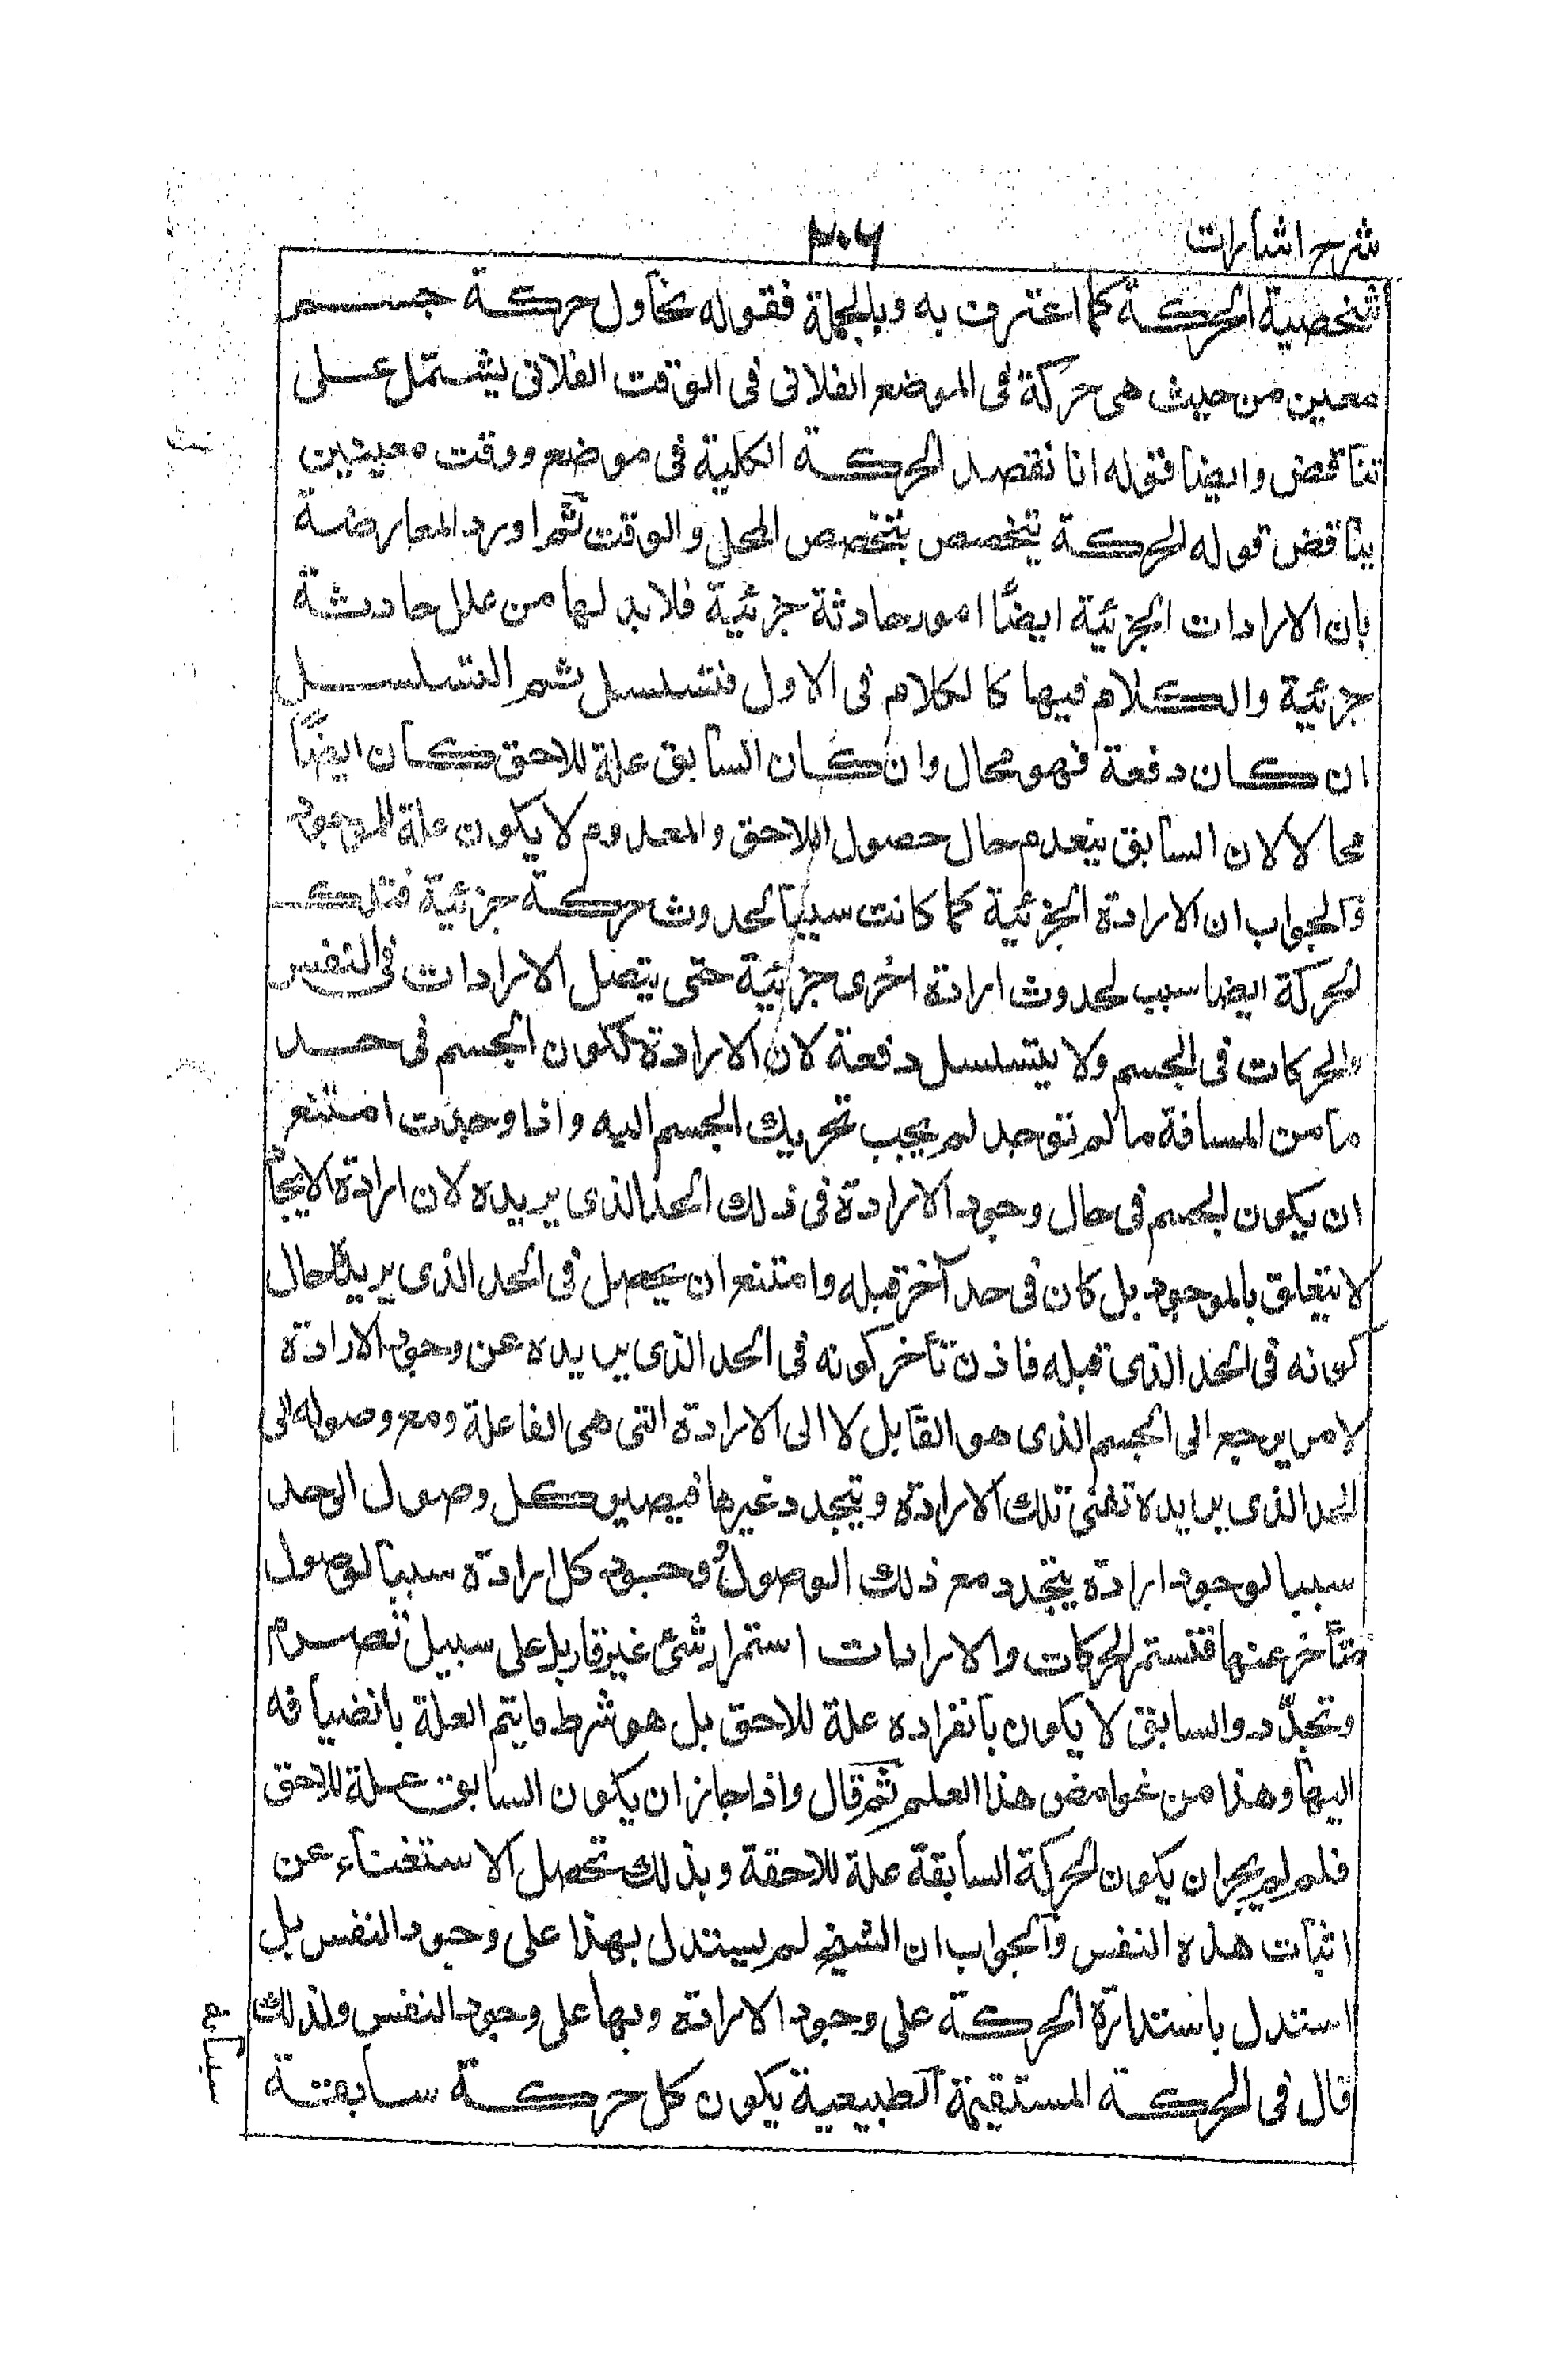 شرح اشارات
٣٠٦
شخصية الحركة كما اعترف به وبالجملة فقوله نحاول حركة جسم
معين من حيث هى حركة فى الموضع الفلانى فى الوقت الفلانى يشتمل على
تناقض وايضا فقوله انا نقصد الحركة الكلية فى موضع ووقت معينين
يناقض قوله الحركة يتخصص بتخصص المحل والوقت ثم اورد المعارضة
بان الارادات الجزئية ايضًا امور حادثة جزئية فلابد لها من علل حادثة
جزئية والكلام فيها كالكلام فى الاول فتسلسل ثم التسلسل
ان كان دفعة فهو محال وان كان السابق علة للاحق كان ايضًا
محالا لان السابق ينعدم حال حصول اللاحق والمعدوم لا يكون علة للموجود
والجواب ان الارادة الجزئية كما كانت سببا لحدوث حركة جزئية فتلك
الحركة ايضا سبب لحدوث ارادة اخرى جزئية حتى يتصل الارادات فى النفس
والحركات فى الجسم ولا يتسلسل دفعة لان الارادة لكون الجسم فى حد
ما من المسافة مالم توجد لم يجب تحريك الجسم اليه واذا وجدت امتنع
ان يكون الجسم فى حال وجود الارادة فى ذلك الحد الذى يريده لان ارادة الايجاد
لا يتعلق بالموجود بل كان فى حد آخر قبله وامتنع ان يحصل فى الحد الذى يريده حال
كونه فى الحد الذى قبله فاذن تأخر كونه فى الحد الذى يريده عن وجود الارادة
لامر يرجع الى الجسم الذى هو القابل لا الى الارادة التى هى الفاعلة ومع وصوله الى
الحد الذى يريده تفنى تلك الارادة ويتجدد غيرها فيصير كل وصول الى حد
سببا لوجود ارادة يتجدد مع ذلك الوصول ووجود كل ارادة سببا لوصول
متأخر عنها فتستمر الحركات والارادات استمرار شئ غير قار بل على سبيل تصرم
وتجدّد والسابق لا يكون بانفراده علة للاحق بل هو شرط ما يتم العلة بانضيافه
اليها وهذا من غوامض هذا العلم ثم قال واذا جاز ان يكون السابق علة للاحق
فلم لم يجز ان يكون الحركة السابقة علة للاحقة وبذلك تحصل الاستغناء عن
اثبات هذه النفس والجواب ان الشيخ لم يستدل بهذا على وجود النفس بل
استدل باستدارة الحركة على وجود الارادة وبها على وجود النفس ولذلك
قال فى الحركة المستقيمة الطبيعية يكون كل حركة سابقة